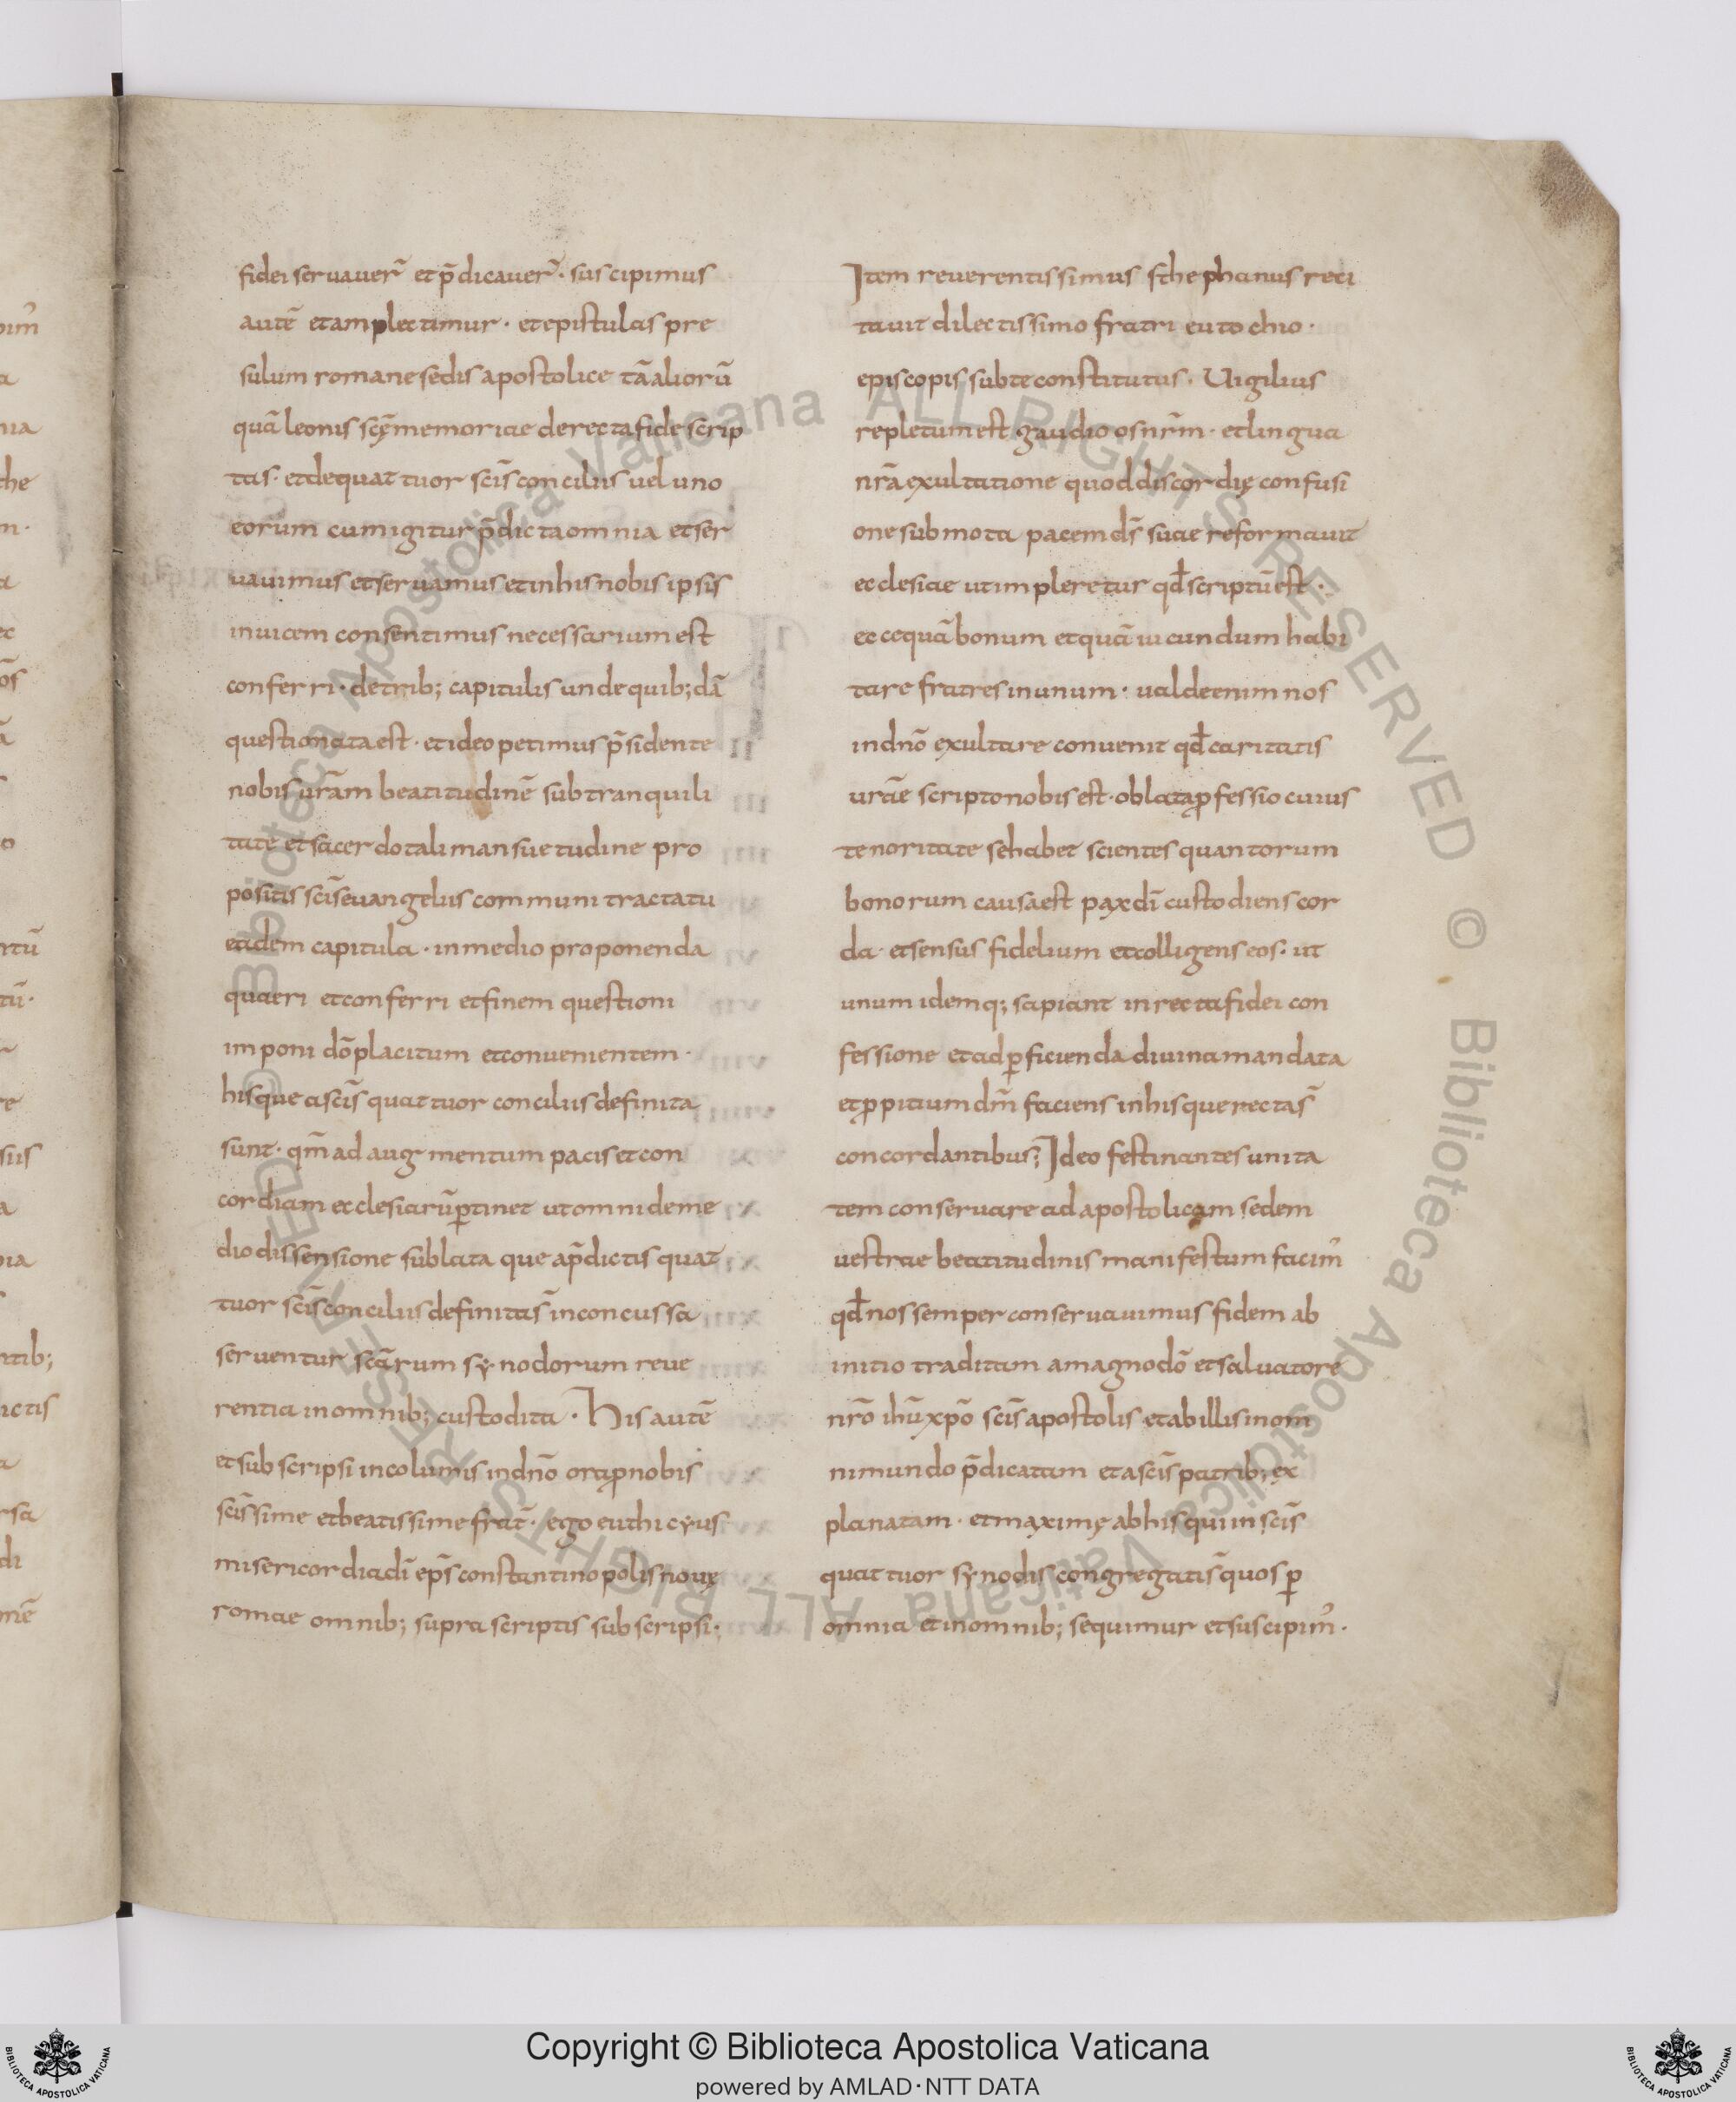 fidei servaver̄ et p̄dicaver̄· suscipimus
autē et amplectimur· et epistulas pre
sulum romane sedis apostolice tā aliorū
quā leonis scę̄ memoriae de recta fide scrip
tas· et de quattuor sc̄is conciliis vel uno
eorum cum igitur p̄dicta omnia et ser
vavimus et servamus et in his nobis ipsis
invicem consentimus necessarium est
conferri· de trib; capitulis unde quib;dā
questio nata est· et ideo petimus p̄sidente
nobis vr̄am beatitudinē sub tranquili
tate et sacerdotali mansuetudine pro
positis sc̄is evangeliis communi tractatu
eadem capitula· in medio proponenda
quaeri et conferri et finem questioni
imponi dō placitum et convenientem·
hisque a sc̄is quattuor conciliis definita
sunt· qm̄ ad augmentum pacis et con
cordiam ecclesiarū ꝑtinet ut omni de me
dio dissensione sublata que a p̄dictis quat
tuor sc̄is conciliis definitas̄ inconcussa
serventur sc̄arum synodorum reve
rentia in omnib; custodita· His autē
et subscripsi incolumis in dn̄o ora ꝓ nobis
sc̄issime et beatissime frat̄· ego euthicyus
misericordia dī ep̄s constantinopolis novę
romae omnib; suprascriptis subscripsi·
Item reverentissimus sthephanus reci
tavit dilectissimo fratri eutochio·
episcopis sub te constitutus· Vigilius
repletum est gaudio os nr̄m· et lingua
nr̄a exultatione quod discordię confusi
one submota pacem d̄s suae reformavit
ecclesiae ut impleretur qđ scriptū est·
ecce quā bonum et quā iucundum habi
tare fratres in unum· valde enim nos
in dn̄o exultare convenit qđ caritatis
vr̄ae scripto nobis est· oblata ꝓfessio cuius
tenor itate se habet scientes quantorum
bonorum causa est pax dī custodiens cor
da· et sensus fidelium et colligens eos· ut
unum idemq; sapiant in recta fidei con
fessione et ad ꝑficienda divina mandata
et ꝓpitium dm̄ faciens in his que rectas̄
concordantibus; Ideo festinantes unita
tem conservare ad apostolicam sedem
vestrae beatitudinis manifestum facim᾽
qđ nos semper conservavimus fidem ab
initio traditam a magno dō et salvatore
nr̄o ihū xp̄o sc̄is apostolis et ab illis in om
ni mundo p̄dicatam et a sc̄is patrib; ex
planatam· et maximę ab his qui in sc̄is
quattuor synodis congregatis̄ quos ꝑ
omnia et in omnib; sequimur et suscipim᾽·
Copyright © Biblioteca Apostolica Vaticana
powered by AMLAD·NTT DATA